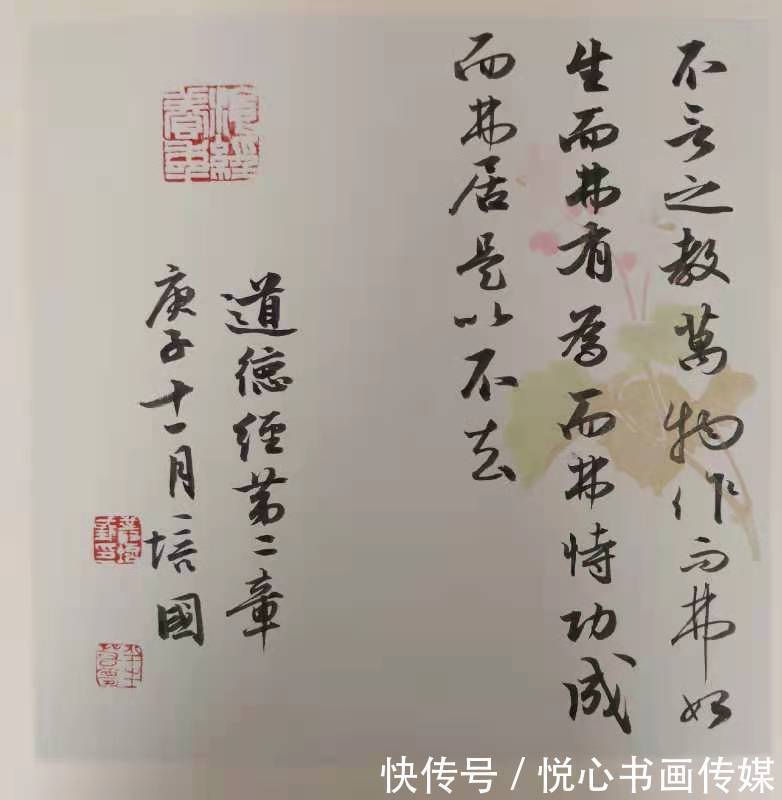 不言之教萬物作而弗始
生而弗有為而弗恃功成
而弗居是以不去
道德經第二章
庚子十一月培國
快传号 / 悦心书画传媒